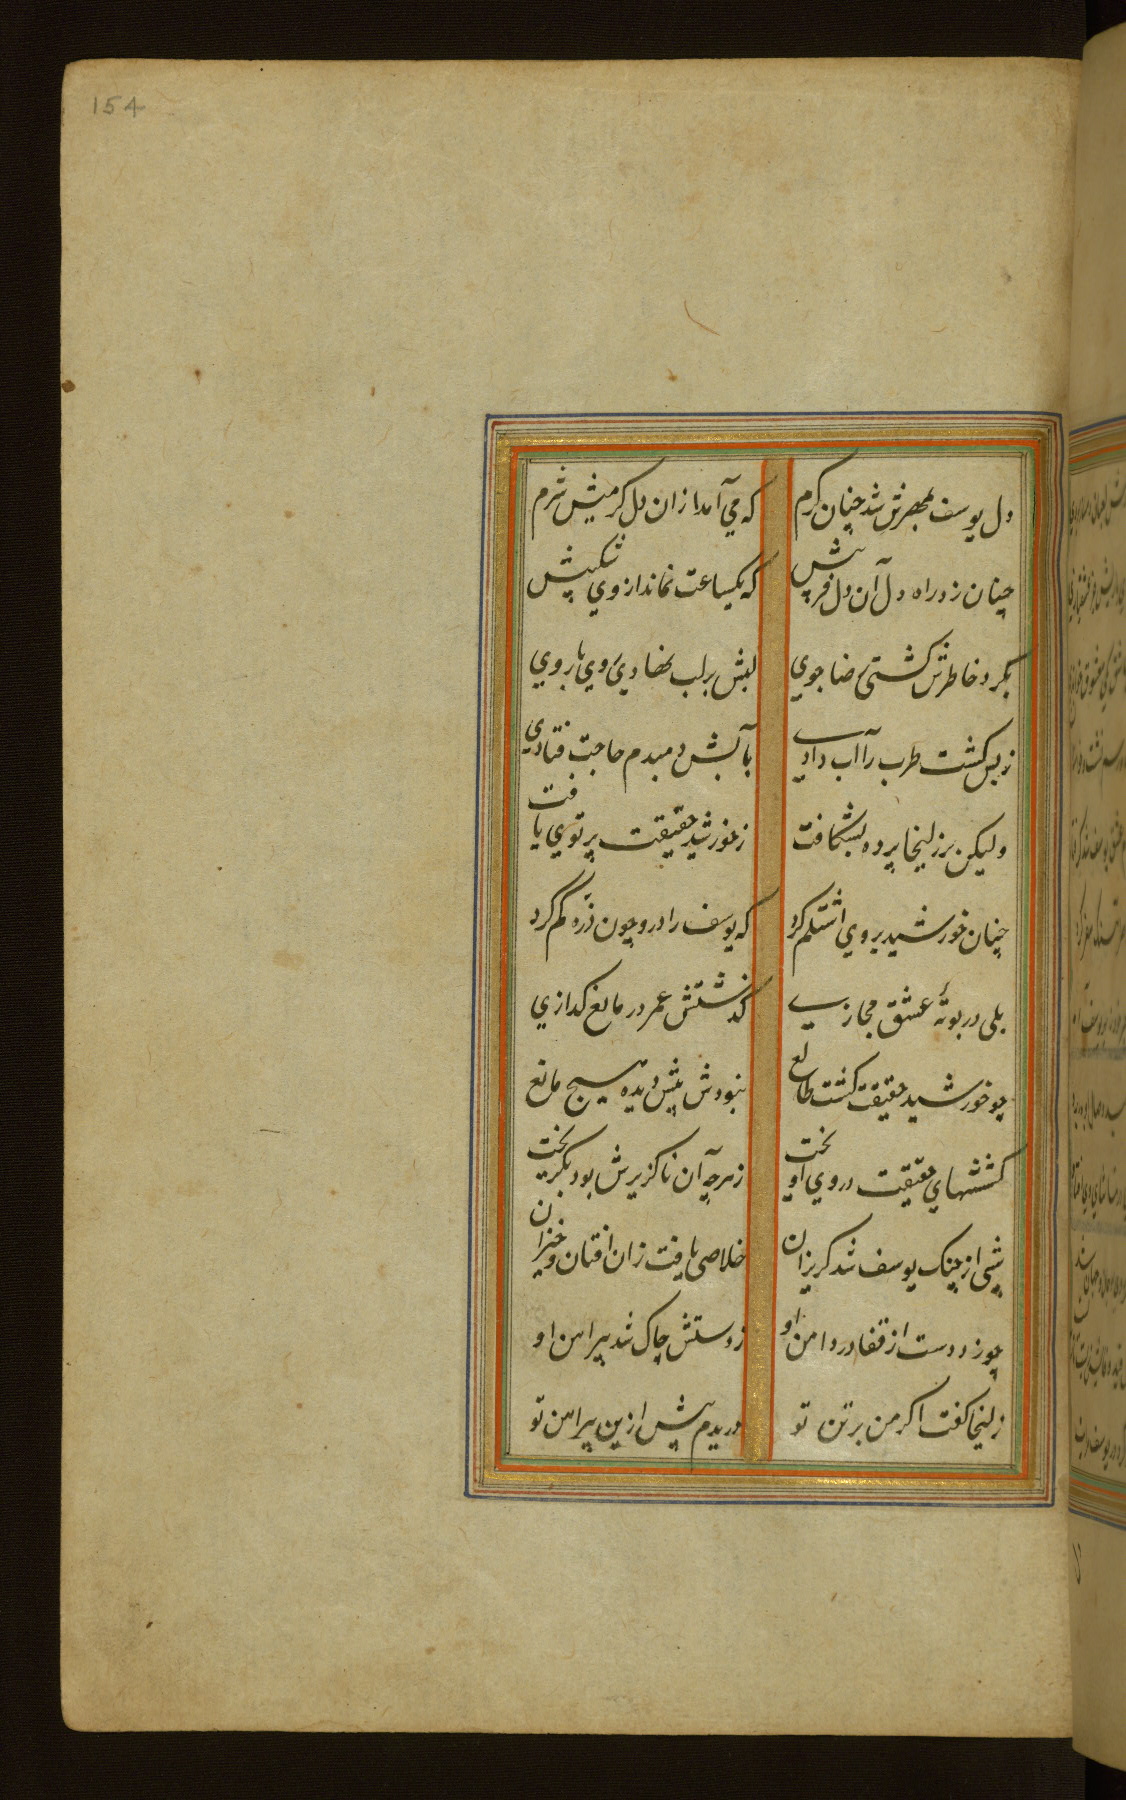 154
دل یوسف بمهرش شد چنان گرم که می آمد ازان دل گرمیش شرم
چنان زد راه دل آن دل فریبش که یکساعت نماند از وی شکیبش
بگرد خاطرش گشتی رضا جوی لبش بر لب نهادی روی با روی
زبس کشت طرب را آب دادی بآبش دمبدم حاجت فتادی
ولیکن بر زلیخا پرده بشکافت ز خورشید حقیقت پرتوی یافت
چنان خورشید بروی اشتلم کرد که یوسف را درو چون ذره گم کرد
بلی در بوتهٔ عشق مجازی گذشتش عمر در مانع گدازی
چو خورشید حقیقت گشت طالع نبودش پیش دیده هیچ مانع
کششهای حقیقت در وی آویخت ز هرچه آن ناگزیرش بود بگریخت
شبی از چنگ یوسف شد گریزان خلاصی یافت زان افتان و خیزان
چو زد دست از قفا در دامن او ز دستش چاک شد پیراهن او
زلیخا گفت اگر من بر تن تو دریدم پیش ازین پیراهن تو